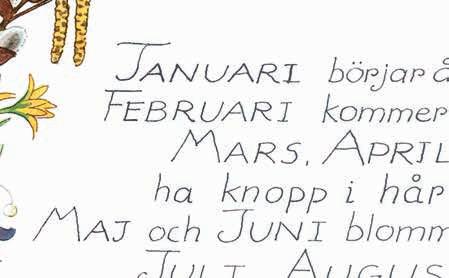 JANUARI börjar å
FEBRUARI kommer
MARS, APRIL
ha knopp i hår
MAJ och JUNI blomm
JULI, AUGUS